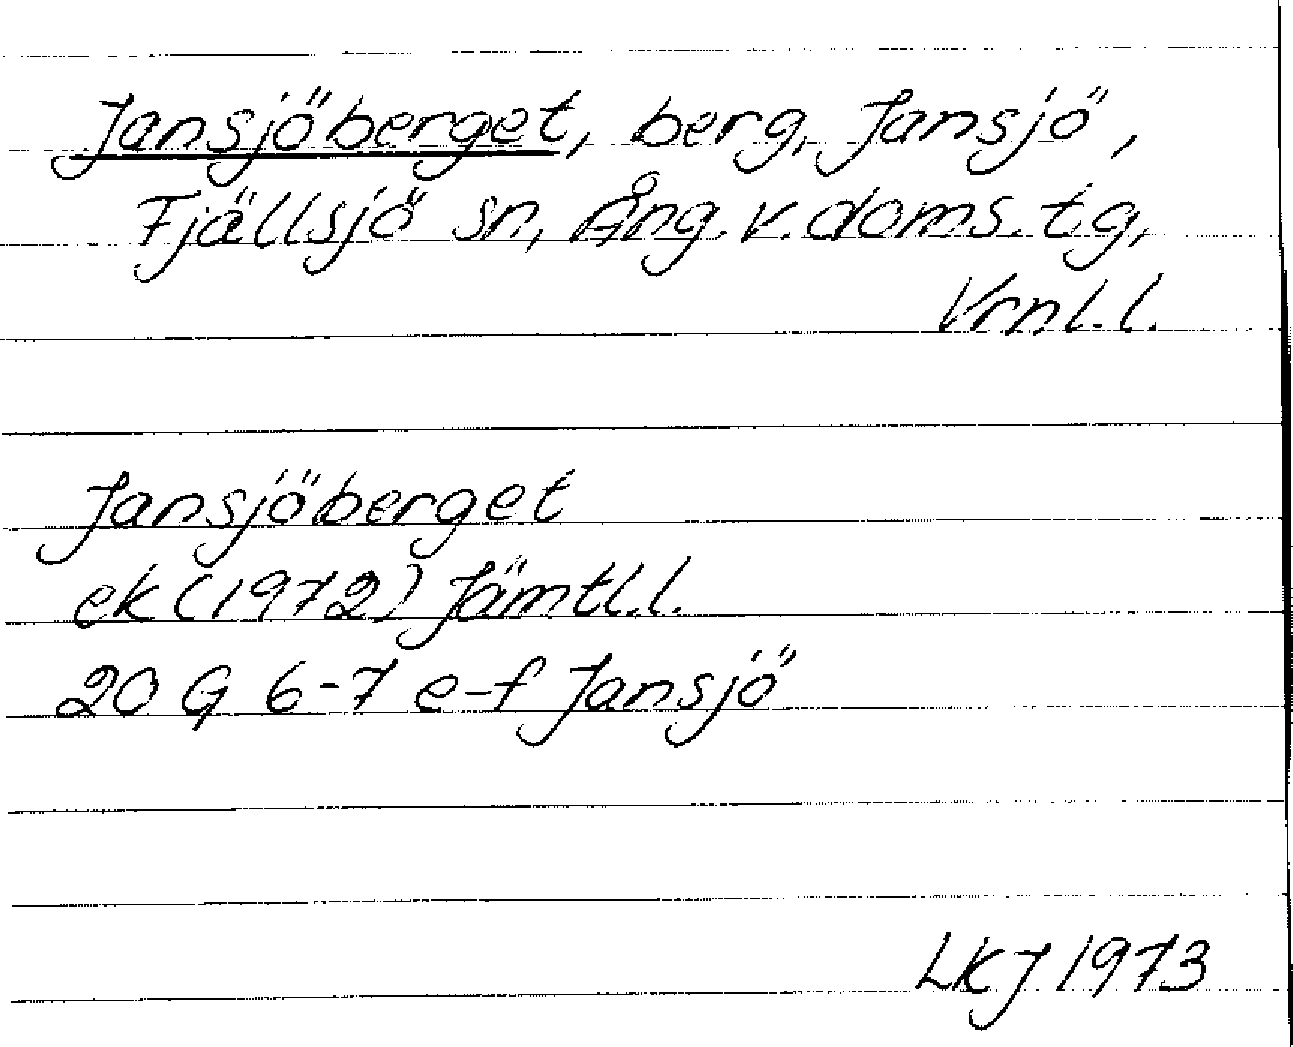 Jansjöberget, berg, Jansjö,
Fjällsjö sn, Ång. v. doms. t.g,
Vrnl. l.
Jansjöberget
ek (1972) Jämtl. l.
20 G 6-7 e-f Jansjö
LKJ 1973